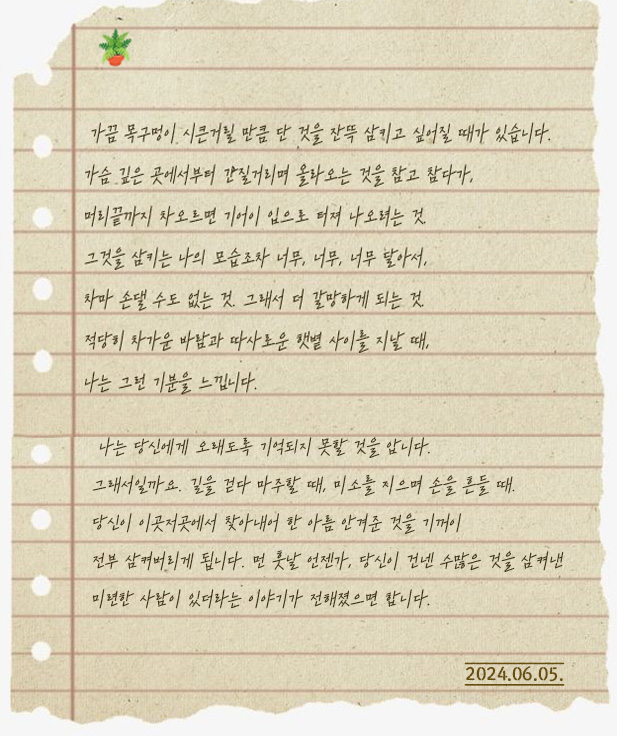 가끔 목구멍이 시큰거릴 만큼 단 것을 잔뜩 삼키고 싶어질 때가 있습니다.
가슴 깊은 곳에서부터 간질거리며 올라오는 것을 참고 참다가,
머리끝까지 차오르면 기어이 입으로 터져 나오려는 것.
그것을 삼키는 나의 모습조차 너무, 너무, 너무 달아서,
차마 손댈 수도 없는 것. 그래서 더 갈망하게 되는 것.
적당히 차가운 바람과 따사로운 햇볕 사이를 지날 때,
나는 그런 기분을 느낍니다.
나는 당신에게 오래도록 기억되지 못할 것을 압니다.
그래서일까요. 길을 걷다 마주할 때, 미소를 지으며 손을 흔들 때.
당신이 이곳저곳에서 찾아내어 한 아름 안겨준 것을 기꺼이
전부 삼켜버리게 됩니다. 먼 훗날 언젠가, 당신이 건넨 수많은 것을 삼켜낸
미련한 사람이 있더라는 이야기가 전해졌으면 합니다.
2024.06.05.